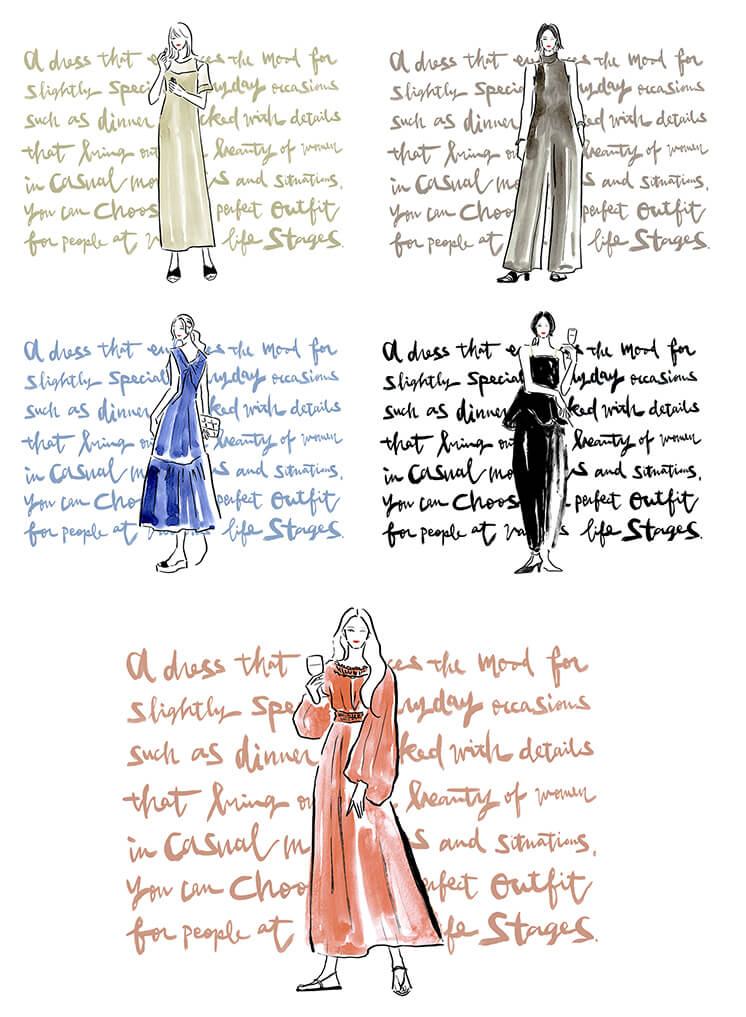 a dress that the mood for
slightly special occasions
such as dinner with details
that bring beauty of women
in casual and situations.
you can choose perfect outfit
for people at life stages.
a dress that the mood for
slightly special occasions
such as dinner with details
that bring beauty of women
in casual and situations.
you can choose perfect outfit
for people at life stages.
a dress that the mood for
slightly special occasions
such as dinner with details
that bring beauty of women
in casual and situations.
you can choose perfect outfit
for people at life stages.
a dress that the mood for
slightly special occasions
such as dinner with details
that bring beauty of women
in casual and situations.
you can choose perfect outfit
for people at life stages.
a dress that the mood for
slightly occasions
such as dinner with details
that bring beauty of women
in casual and situations.
you can choose perfect outfit
for people at life stages.